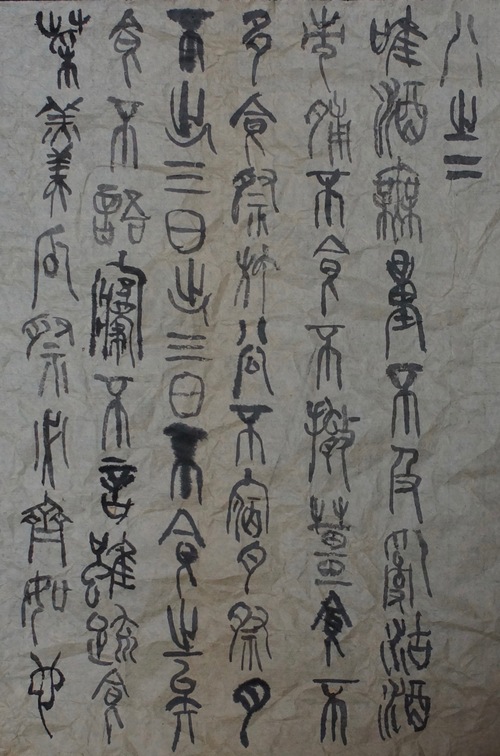 八之二
唯酒無量不及亂沽酒
市脯不食不撤薑食不
多食祭於公不宿肉祭肉
不出三日出三日不食之矣
食不語寢不言雖疏食
菜羹瓜祭必齊如也